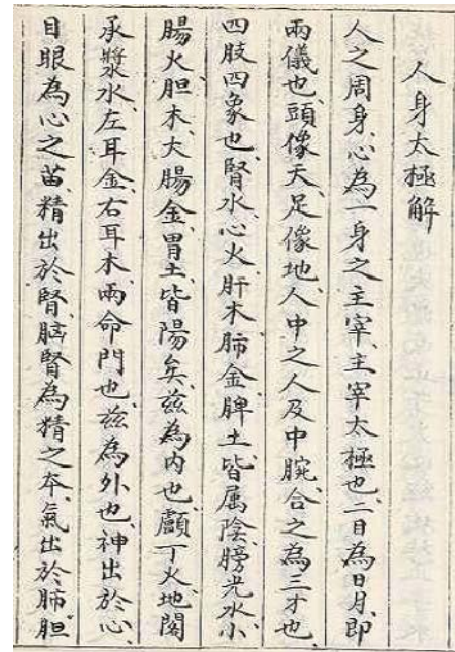 人身太極解
人之周身、心為一身之主宰、主宰太極也、二目為日月、即
兩儀也、頭像天、足像地、人中之人及中腕、合之為三才也、
四肢四象也、腎水、心火、肝木、肺金、脾土、皆属陰、膀光水、小
腸火、胆木、大腸金、胃土、皆陽矣、茲為内也、顱丁火、地閣
承漿水、左耳金、右耳木、兩命門也、茲為外也、神出於心、
目眼為心之苗、精出於腎、腦腎為精之本、氣出於肺、胆